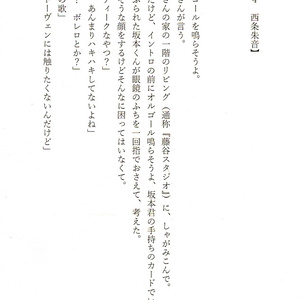 4　西条朱音】
ゴールを鳴らそうよ。
さんが言う。
さんの家の一階のリビング（通称『藤谷スタジオ』）に、しゃがみこんで。
だけど、イントロの前にオルゴール鳴らそうよ、坂本君の手持ちのカードで
ふられた坂本くんが眼鏡のふちを一回指でおさえて、考えた。
そうな顔をするけどそんなに困ってはいなくて。
ティークなやつ？」
あんまりハキハキしてないよね」
ボレロとか？」
の歌」
トーヴェンには触りたくないんだけど」